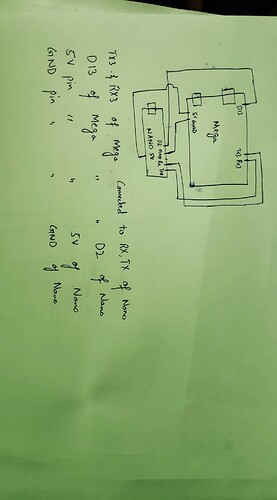 D13
TX3 RX3
Mega
5V GND
D2 GND RX TX
NANO 5V
TX3 & RX3 of Mega Connected to RX, TX of Nano
D13 of Mega " " D2 of Nano
5V pin " " 5V of Nano
GND pin " " GND of Nano